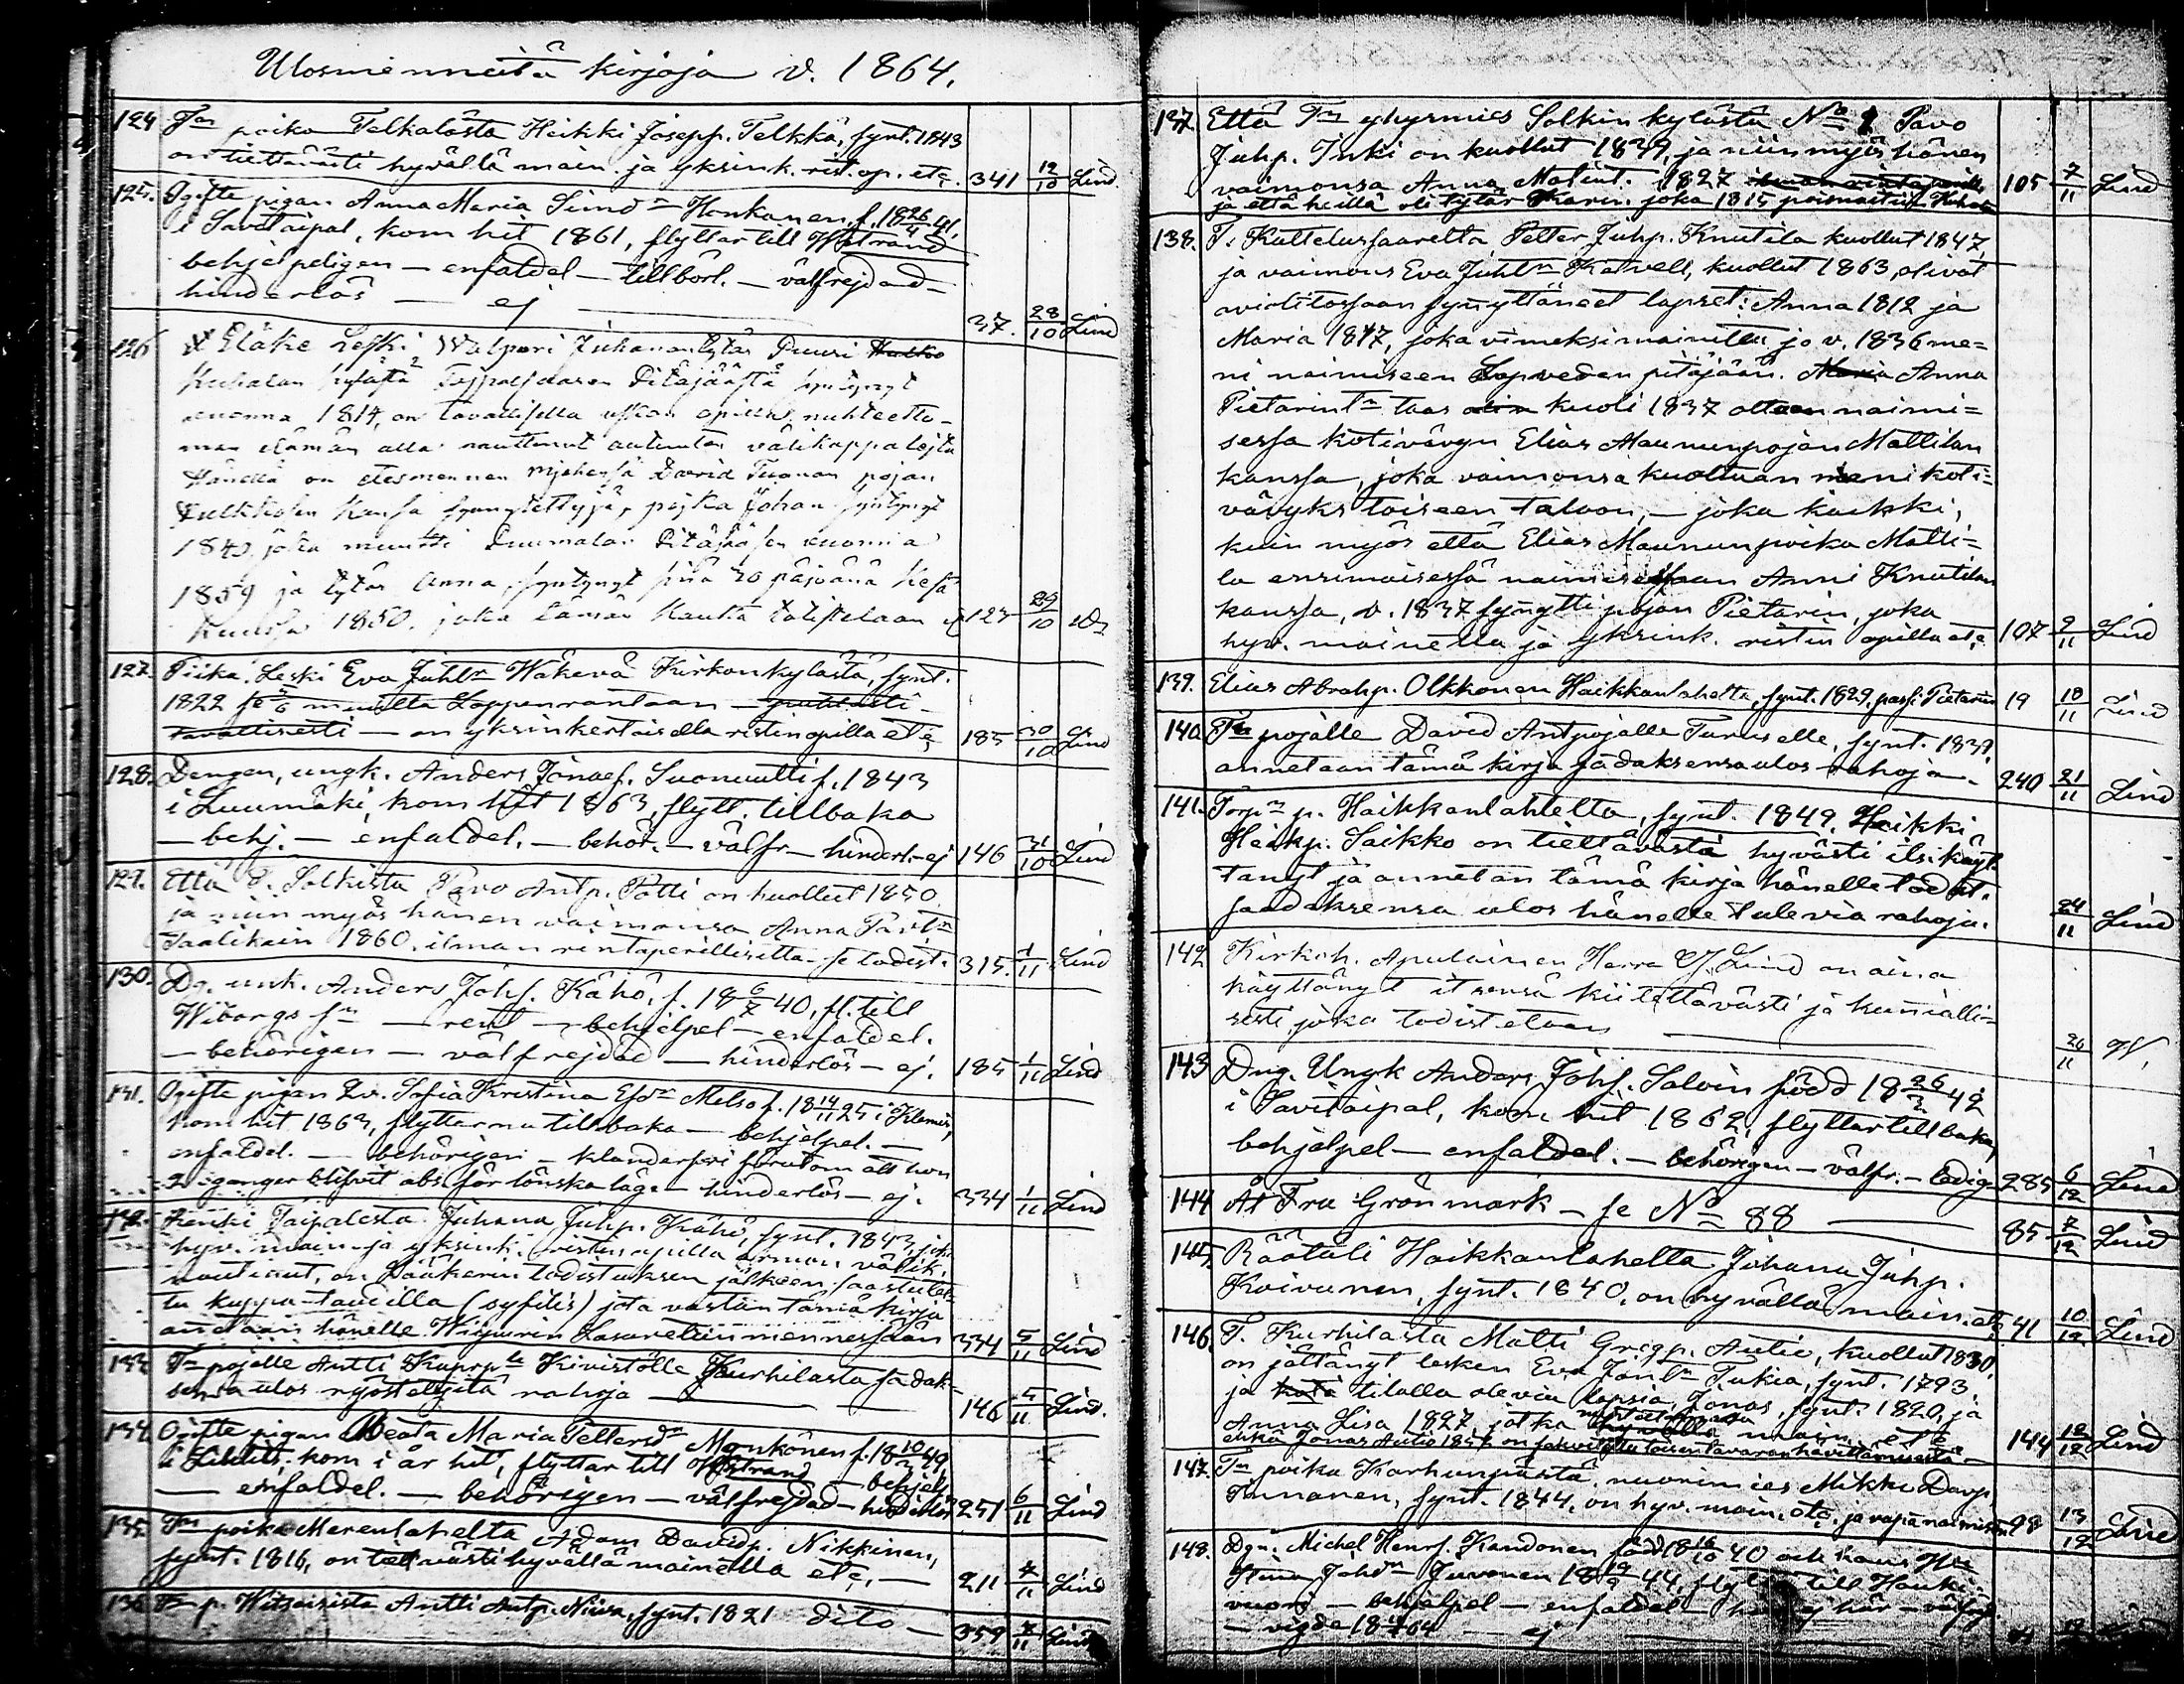 Ulosmenneitä kirjoja v. 1864.
124 Tan poika Telkälästä Heikki Josepp. Telkkä, synt. 1843
on tiettävästi hyvällä main. ja yksink. rist. op. etc. 341 12/10 Lind
125. Ogifta pigan Anna Maria Simdr Honkanen, f. 18 26/4 41,
i Savitaipal, kom hit 1861, flyttar till Wstrand
behjelpeligen — enfaldel — tillbörl. — välfrejdad —
hinderlös — ej 37. 28/10 Lind
126 Eläke Leski Walpori Juhanan tytär Puuri
Kuhalan kylästä Taipalsaaren Pitäjäästä syntynyt
vuonna 1814, on tavallisella uskon opilla, nuhteetto-
man elämän alla nauttinut autuuden välikappaleita
Hänellä on edesmennen miehensä David Tuoman pojan
Kanssa synnytettyjä, poika Johan syntynyt
1840, joka muutti Luumälan Pitäjääsen vuonna
1859 ja tytär Anna, syntynyt siiä 20 päivänä Kesä
Kuussa 1850. joka tämän kautta todistetaan 123 29/10
127. Piika Leski Eva Juhltr Wäkevä Kirkonkylästä, synt.
1822 muutta Lappenrantaan
tavallisesti — on yksinkertaisella ristinopilla etc, 185 30/10 Lind
128. Dengen, ungk. Anders Jönsef. Suomutti f. 1843
i Luumäki, kom hit 1863, flytt. tillbaka
— behj. — enfaldel. — behör. — välfr — hinderl. — ej 146 31/10 Lind
129. Että T. Solkista Pavo Antp. Potti on kuollut 1850
ja niin myös hänen vaimonsa Anna Pavltr
Taalikain 1860. ilman rintaperillisittä se todist. 315. 1/11 Lind
130. Dg. unk. Anders Johs. Kähö, f. 18 6/7 40, fl. till
Wiborgs sn — rent — behjelpel — enfaldel.
— behörigen — välfrejdad — hinderlös — ej. 185 1/11 Lind
131. Ogifta pigan Qv. Sofia Kristina Esdr Melso f. 18 14/11 25 i Klemis,
kom hit 1863, flyttar nu tillbaka — behjelpel. —
enfaldel. — behörigen — klanderfri förutom att hon
2 gånger blifvit abs. för lönskaläge — hinderlös — ej. 334 1/11 Lind
132. Renki Taipalesta Juhana Juhp. Kähö, synt. 1843, joka
hyv. main. ja yksink. ristinopilla armon välik.
nautinut, on Lääkerin todistuksen jälkeen saastutet-
tu kuppa-taudilla (syfilis) jota vastan tämä kirja
annetaan hänelle Wiipurin Lasarettiin mennessään 334 5/11 Lind
133. Tn pojalle Antti Kaprp lle Kivistölle Kurhilasta sadak-
sensa ulos ryöstettyitä rahoja 146 5/11 Lind.
134. Ogifta pigan Beata Maria Pettersdr Monkönen f. 18 10/3 49
i Libelits. kom i år hit, flyttar till Wstrand — behjelp
— enfaldel. — behörigen — välfrejdad — hinderlös 251 6/11 Lind
135. Tn poika Merenlahelta Adam Davidp. Nikkinen,
synt. 1816, on tiettävästi hyvällä mainella etc. — 211 7/11 Lind
136. Tn p. Witsaisista Antti Antp. Niira, synt. 1821 dito — 359 7/11 Lind
137. Että Tn yhyrmies Solkin kylästä No 2 Pavo
Juhp. Inki on kuollut 1839, ja niin myös hänen
vaimonsa Anna Matint. 1827
ja että heillä oli tytär Karin. joka 1815 poismuutti 105 7/11 Lind
138. T. Kattelussaarelta Petter Juhp. Knutila kuollut 1847,
ja vaimons Eva Juhltr Katvell, kuollut 1863, olivat
aviolitossaan synnyttäneet lapset: Anna 1812 ja
Maria 1817, joka vimeksimainittu jo v. 1836 me-
ni naimiseen Lapveden pitäjään. Maria Anna
Pietarintr taas kuoli 1837 ollen naimi-
sessa kotivävyn Elias Maununpojan Mattilan
kanssa, joka vaimonsa kuoltuan meni koti-
vävyks toiseen taloon, — joka kaikki,
kuin myös että Elias Maununpoika Matti-
la ensimäisessä naimisessaan Anni Knutilan
kanssa, v. 1837 synytti pojan Pietarin, joka
hyv. mainella ja yksink. ristin opilla etc. 107 9/11 Lind
139. Elias Abrahp. Olkkonen Haikkanlahelta, synt. 1829, passi Pietarin 19 18/11 Lind
140. Tn pojalle David Antpojalle Turuselle, synt. 1839,
annetaan tämä kirja sadaksensa ulos rahoja — 240 21/11 Lind
141. Torpn p. Haikkanlahtelta, synt. 1849, Heikki
Heikp. Saikko on tiettävästi hyvästi itsikäyt-
tänyt ja annetan tämä kirja hänelle todist.
saadaksensa ulos hänelle tulevia rahoja. 24/11 Lind
142 Kirkoh. Apulainen Herra Lind on aina
käyttänyt itsensä kiitettävästi ja kunialli-
sesti, joka todistetaan 26/11 W.
143 Dng. Ungk Anders Johs. Solvin född 18 26/3 42
i Savitaipal, kom hit 1862, flyttar tillbaka,
behjelpel — enfaldel. — behörigen — välfr. — ledig 285 6/12 Lind
144 Åt Fru Grönmark — se No 88 85 7/12 Lind
145, Räätäli Haikkanlahelta Johana Juhp.
Koivunen, synt. 1840, on hyvällä main. etc 41 10/12 Lind
146. T. Kurhilasta Matti Gregp. Autio, kuollut 1830,
on jättänyt lesken Eva Jöntr Tukia, synt. 1793,
ja tilalla olevia lapsia, Jonas, synt. 1820, ja
Anna Lisa 1827 jotka main. etc
ehkä Jonas Autio 1857 on toisen tavaran hävittämisestä — 144 12/12 Lind
147. Tn poika Karhunpäästä nuorimies Mikko Davp.
Innanen, synt. 1844, on hyv. main. etc. ja vapa naimisen 98 13/12 Lind
148. Dgn. Michel Henrs. Kandonen född 18 16/10 40 och hans Hu
Stina Johdr Juvonen 18 19/9 44, flytt till Hauki-
vuori — behjelpel — enfaldel —
— vigde 18 64 — ej